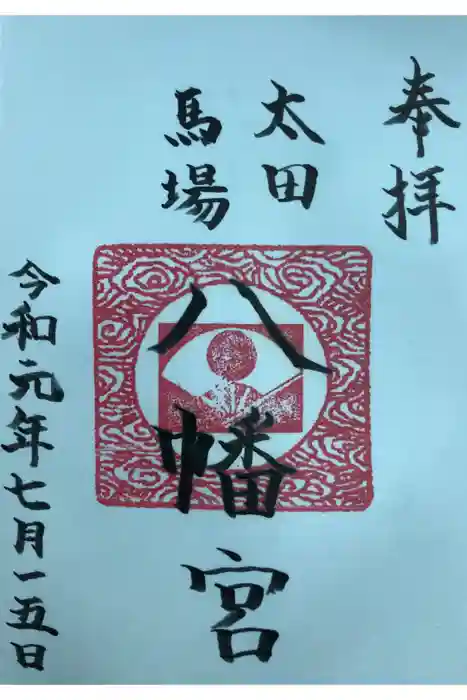 奉拝
太田
馬場
八幡宮
令和元年七月一五日